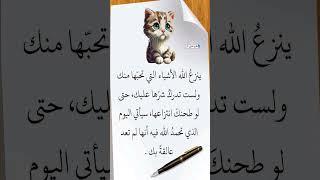 ينزعُ الله الأشياء التي تحبّها منك
ينزعُ الله الأشياء التي تحبّها منك
ولست تدركُ شرّها عليك، حتى
لو طحنك انتزاعها، سيأتي اليوم
الذي تحمدُ الله فيه أنها لم تعد
عالقةً بك .